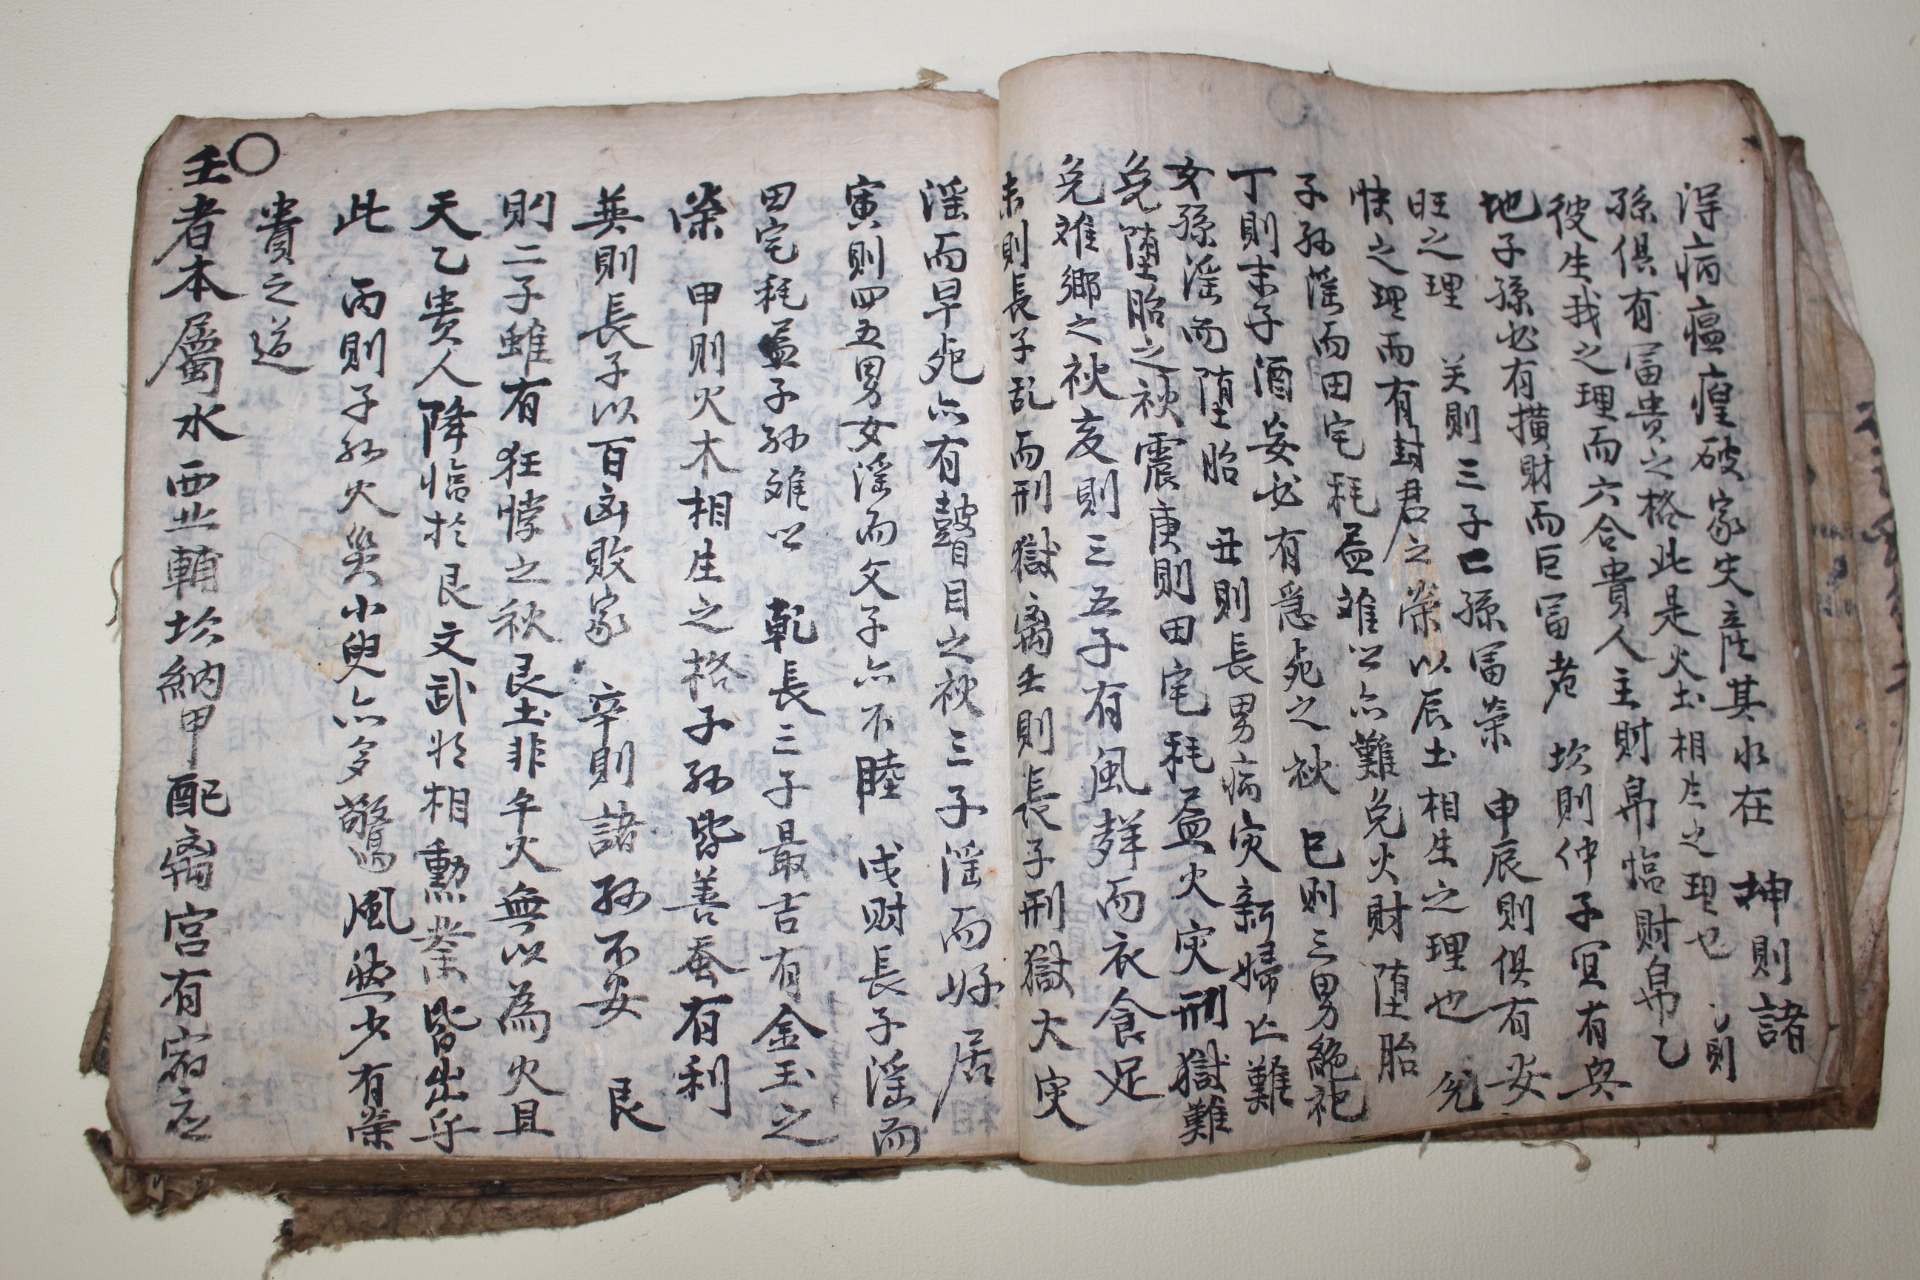 得病瘟瘟破家失産其水在 坤則諸
孫俱有冨貴之格此是火土相生之理也 則
彼生我之理而六合貴人主財帛臨財帛乙
地子孫必有橫財而巨冨者 坎則仲子冝有與
旺之理 則三子已孫冨榮 申辰則俱有
快之理而有封君之榮以辰土相生之理也 兊
子孫滛而田宅耗 難以亦難免火財墮胎
丁則末子酒妄必有 死之 巳則三男絶祀
女孫滛而墮胎 丑則長男病灾新婦亡難
免墮胎之 震庚則田宅耗 火灾刑獄難
免难鄉之 亥則三五子有風 而衣食足
未則長子乱而刑獄 離壬則長子刑獄大灾
滛而早死亦有瞽目之 三子滛而 居
寅則四五男女滛而父子亦不睦 戌財長子滛而
田宅耗 子孫难以 乾長三子最吉有金玉之
榮 甲則火木相生之格子孫皆善 有利
英則長子以百凶敗家 辛則諸孫不安 艮
則二子雖有狂悖之 艮土非午火無以為火且
天乙貴人降臨於艮文武 相勳業皆出乎
此 丙則子孫火災小 亦多驚風 少有榮
貴之道
○壬者本屬水 輔坎納甲配离宮有